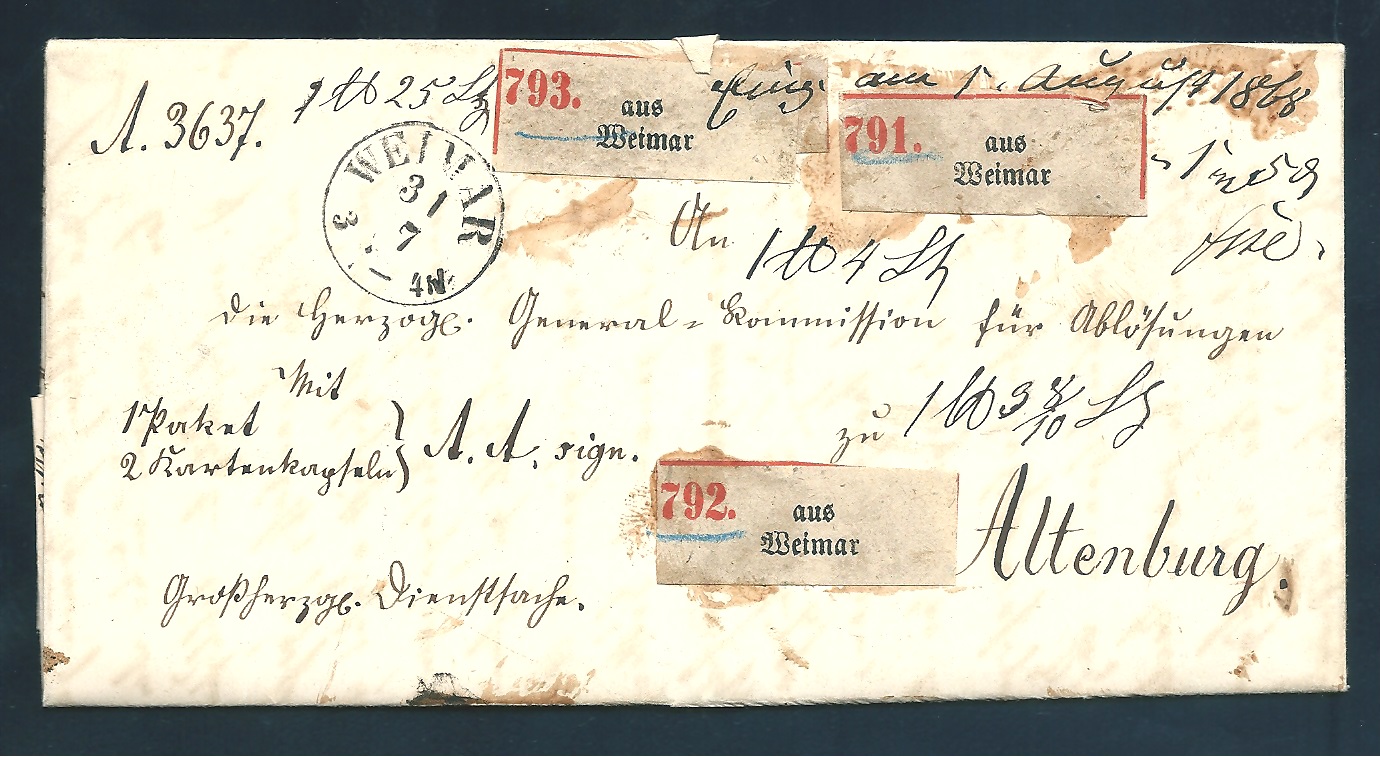 A. 3637.
1 ℔ 25 Lth
793.
aus
Weimar
eing. am 1. August 1868
791.
aus
Weimar
WEIMAR
31
7
4N.
An
1 ℔ 4 Lth
die Herzogl. General-Kommission für Ablösungen
Mit
1 Paket
2 Kartenkapseln
A. A. sign.
zu
1 ℔ 3 8/10 Lth
792.
aus
Weimar
Altenburg.
Großherzgl. Dienstsache.